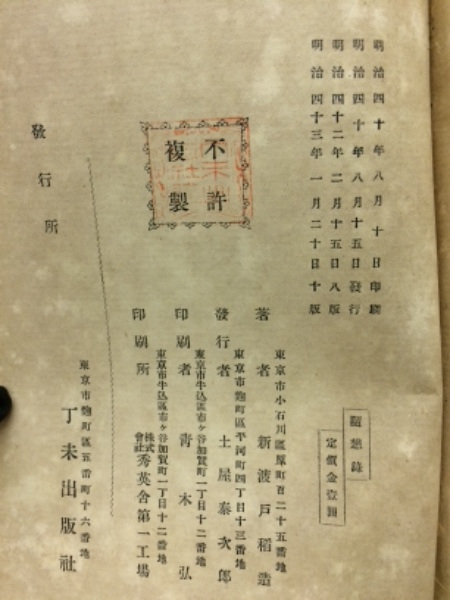 明治四十年八月十日印刷
明治四十年八月十五日發行
明治四十二年二月十五日八版
明治四十三年一月二十日十版
不許
複製
隨想錄
定價金壹圓
東京市小石川區原町百二十五番地
著者 新渡戸稻造
東京市麴町區平河町四丁目十三番地
發行者 土屋泰次郎
東京市牛込區市ヶ谷加賀町一丁目十二番地
印刷者 青木弘
東京市牛込區市ヶ谷加賀町一丁目十二番地
印刷所 株式會社秀英舍第一工場
發行所
東京市麴町區五番町十六番地
丁未出版社